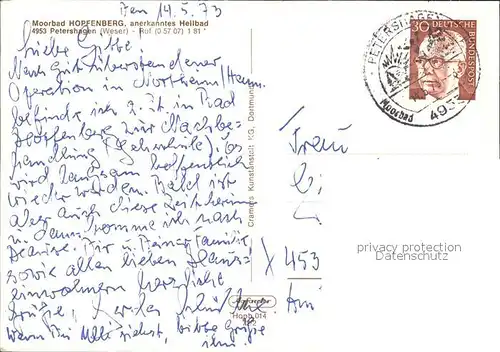 Den 14.5.73
Moorbad HOPFENBERG, anerkanntes Heilbad
4953 Petershagen (Weser) - Ruf (0 57 07) 1 81
Liebe
Nach gut überstandener
Operation in Northeim/Hann.
befinde ich z. Zt. in Bad
Hopfenberg zur Nachbe-
handlung (Gehschule). Es
wird langsam hoffentlich
wieder werden. Bald ist
aber auch diese Zeit herum
u. dann komme ich nach
Hause. Dir u. Deiner Familie,
sowie allen lieben Haus-
einwohnern herzliche
Grüße,
Wenn Du siehst, bitte Grüße
ihm
Cramers Kunstanstalt KG, Dortmund
Hopb 014
30 DEUTSCHE BUNDESPOST
PETERSHAGEN
Moorbad
495
Frau
453
privacy protection
Datenschutz